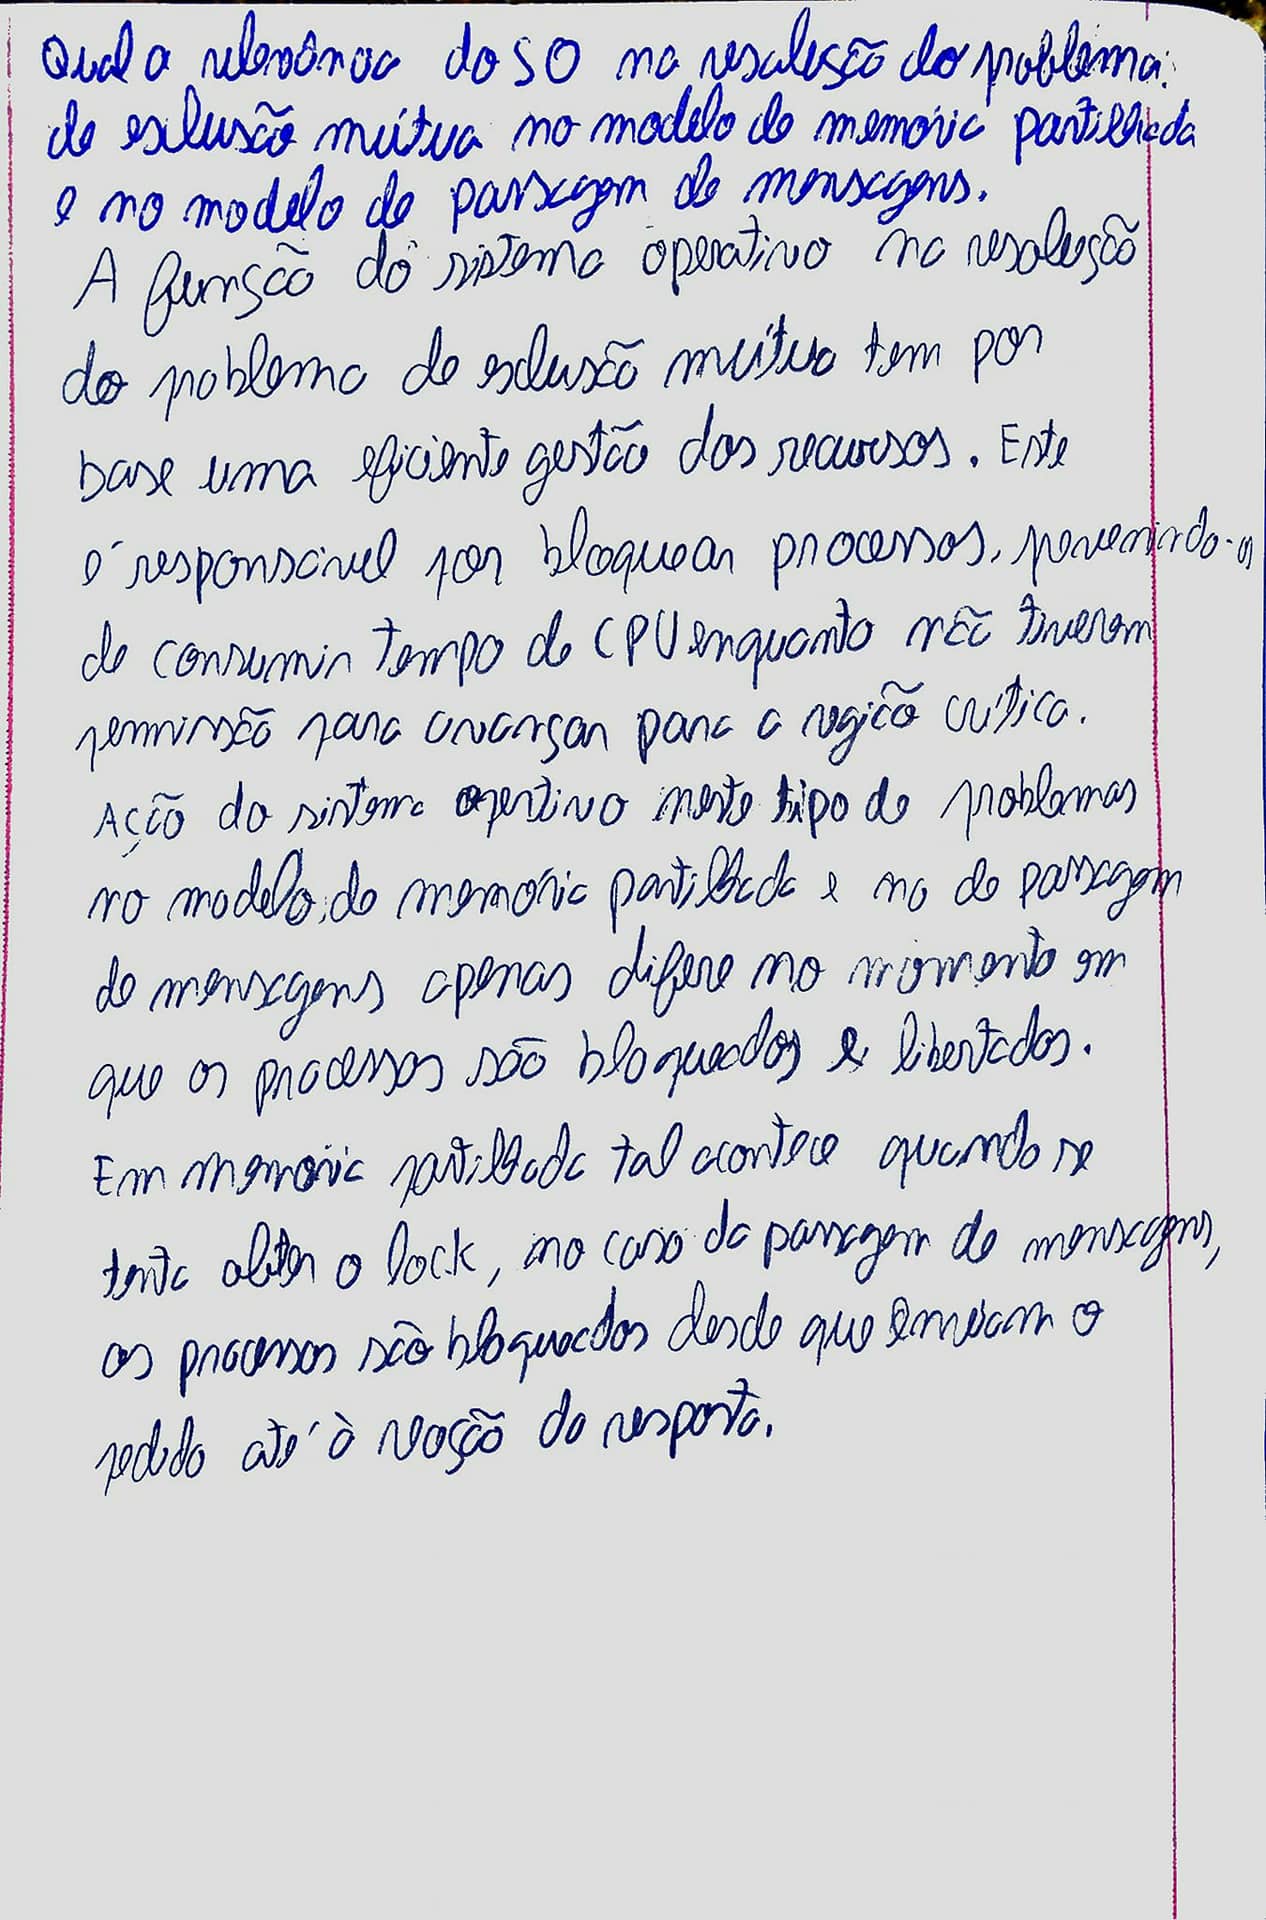 Qual a relevância do SO na resolução do problema
de exclusão mútua no modelo de memória partilhada
e no modelo de passagem de mensagens.
A função do sistema operativo na resolução
do problema de exclusão mútua tem por
base uma eficiente gestão dos recursos. Este
é responsável por bloquear processos, prevenindo-os
de consumir tempo de CPU enquanto não tiverem
permissão para avançar para a região crítica.
Ação do sistema opertivo neste tipo de problemas
no modelo de memória partilhada e no de passagem
de mensagens apenas difere no momento em
que os processos são bloqueados e libertados.
Em memória partilhada tal acontece quando se
tenta obter o lock, no caso da passagem de mensagens,
os processos são bloqueados desde que enviam o
pedido até à receção da resposta.